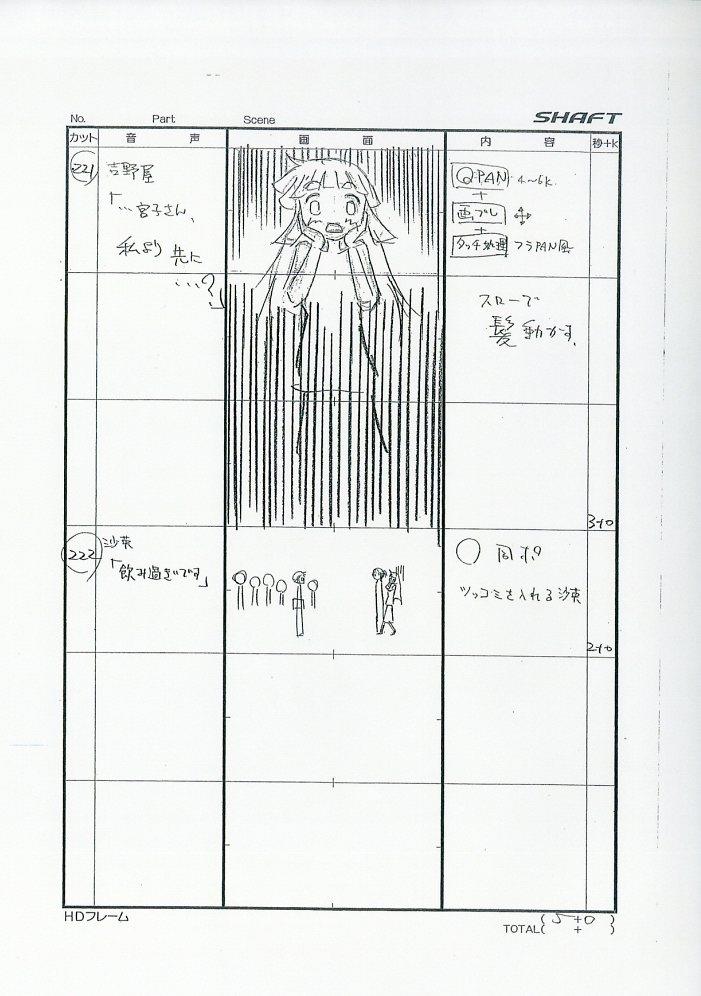 No.	Part	Scene	SHAFT
カット	音　声	画　面	内　容	秒+K
221
吉野屋
「…宮子さん、
私より先に
…?」
Q・PAN 4〜6K
+
画ブレ
+
タッチ処理 フラPAN風
スローで
髪動かす。
3+0
222
沙英
「飲み過ぎです」
○ 同ポ
ツッコミを入れる沙英
2+0
HDフレーム
TOTAL( 5+0 )
( + )